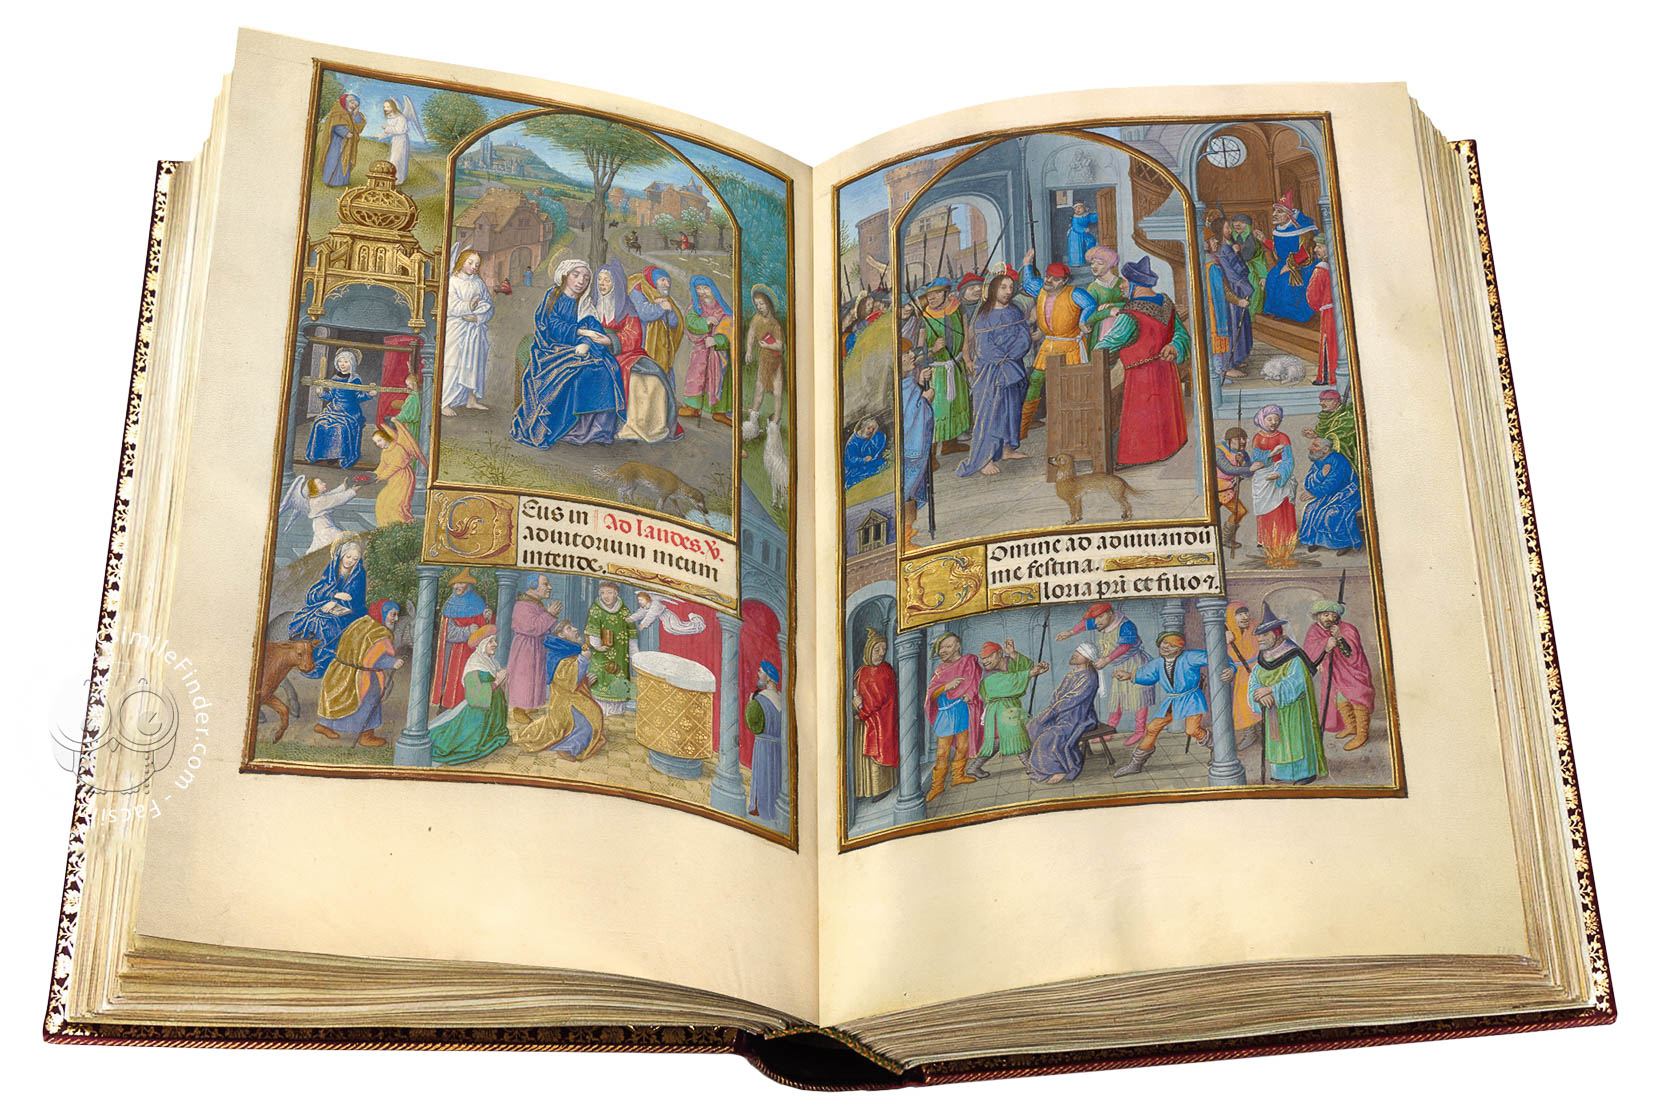 Eus in Ad laudes. V.
adiutorium meum
intende.
Domine ad adiuuandū
me festina.
Gloria pri et filio ⁊.
FacsimileFinder.com - Facsi